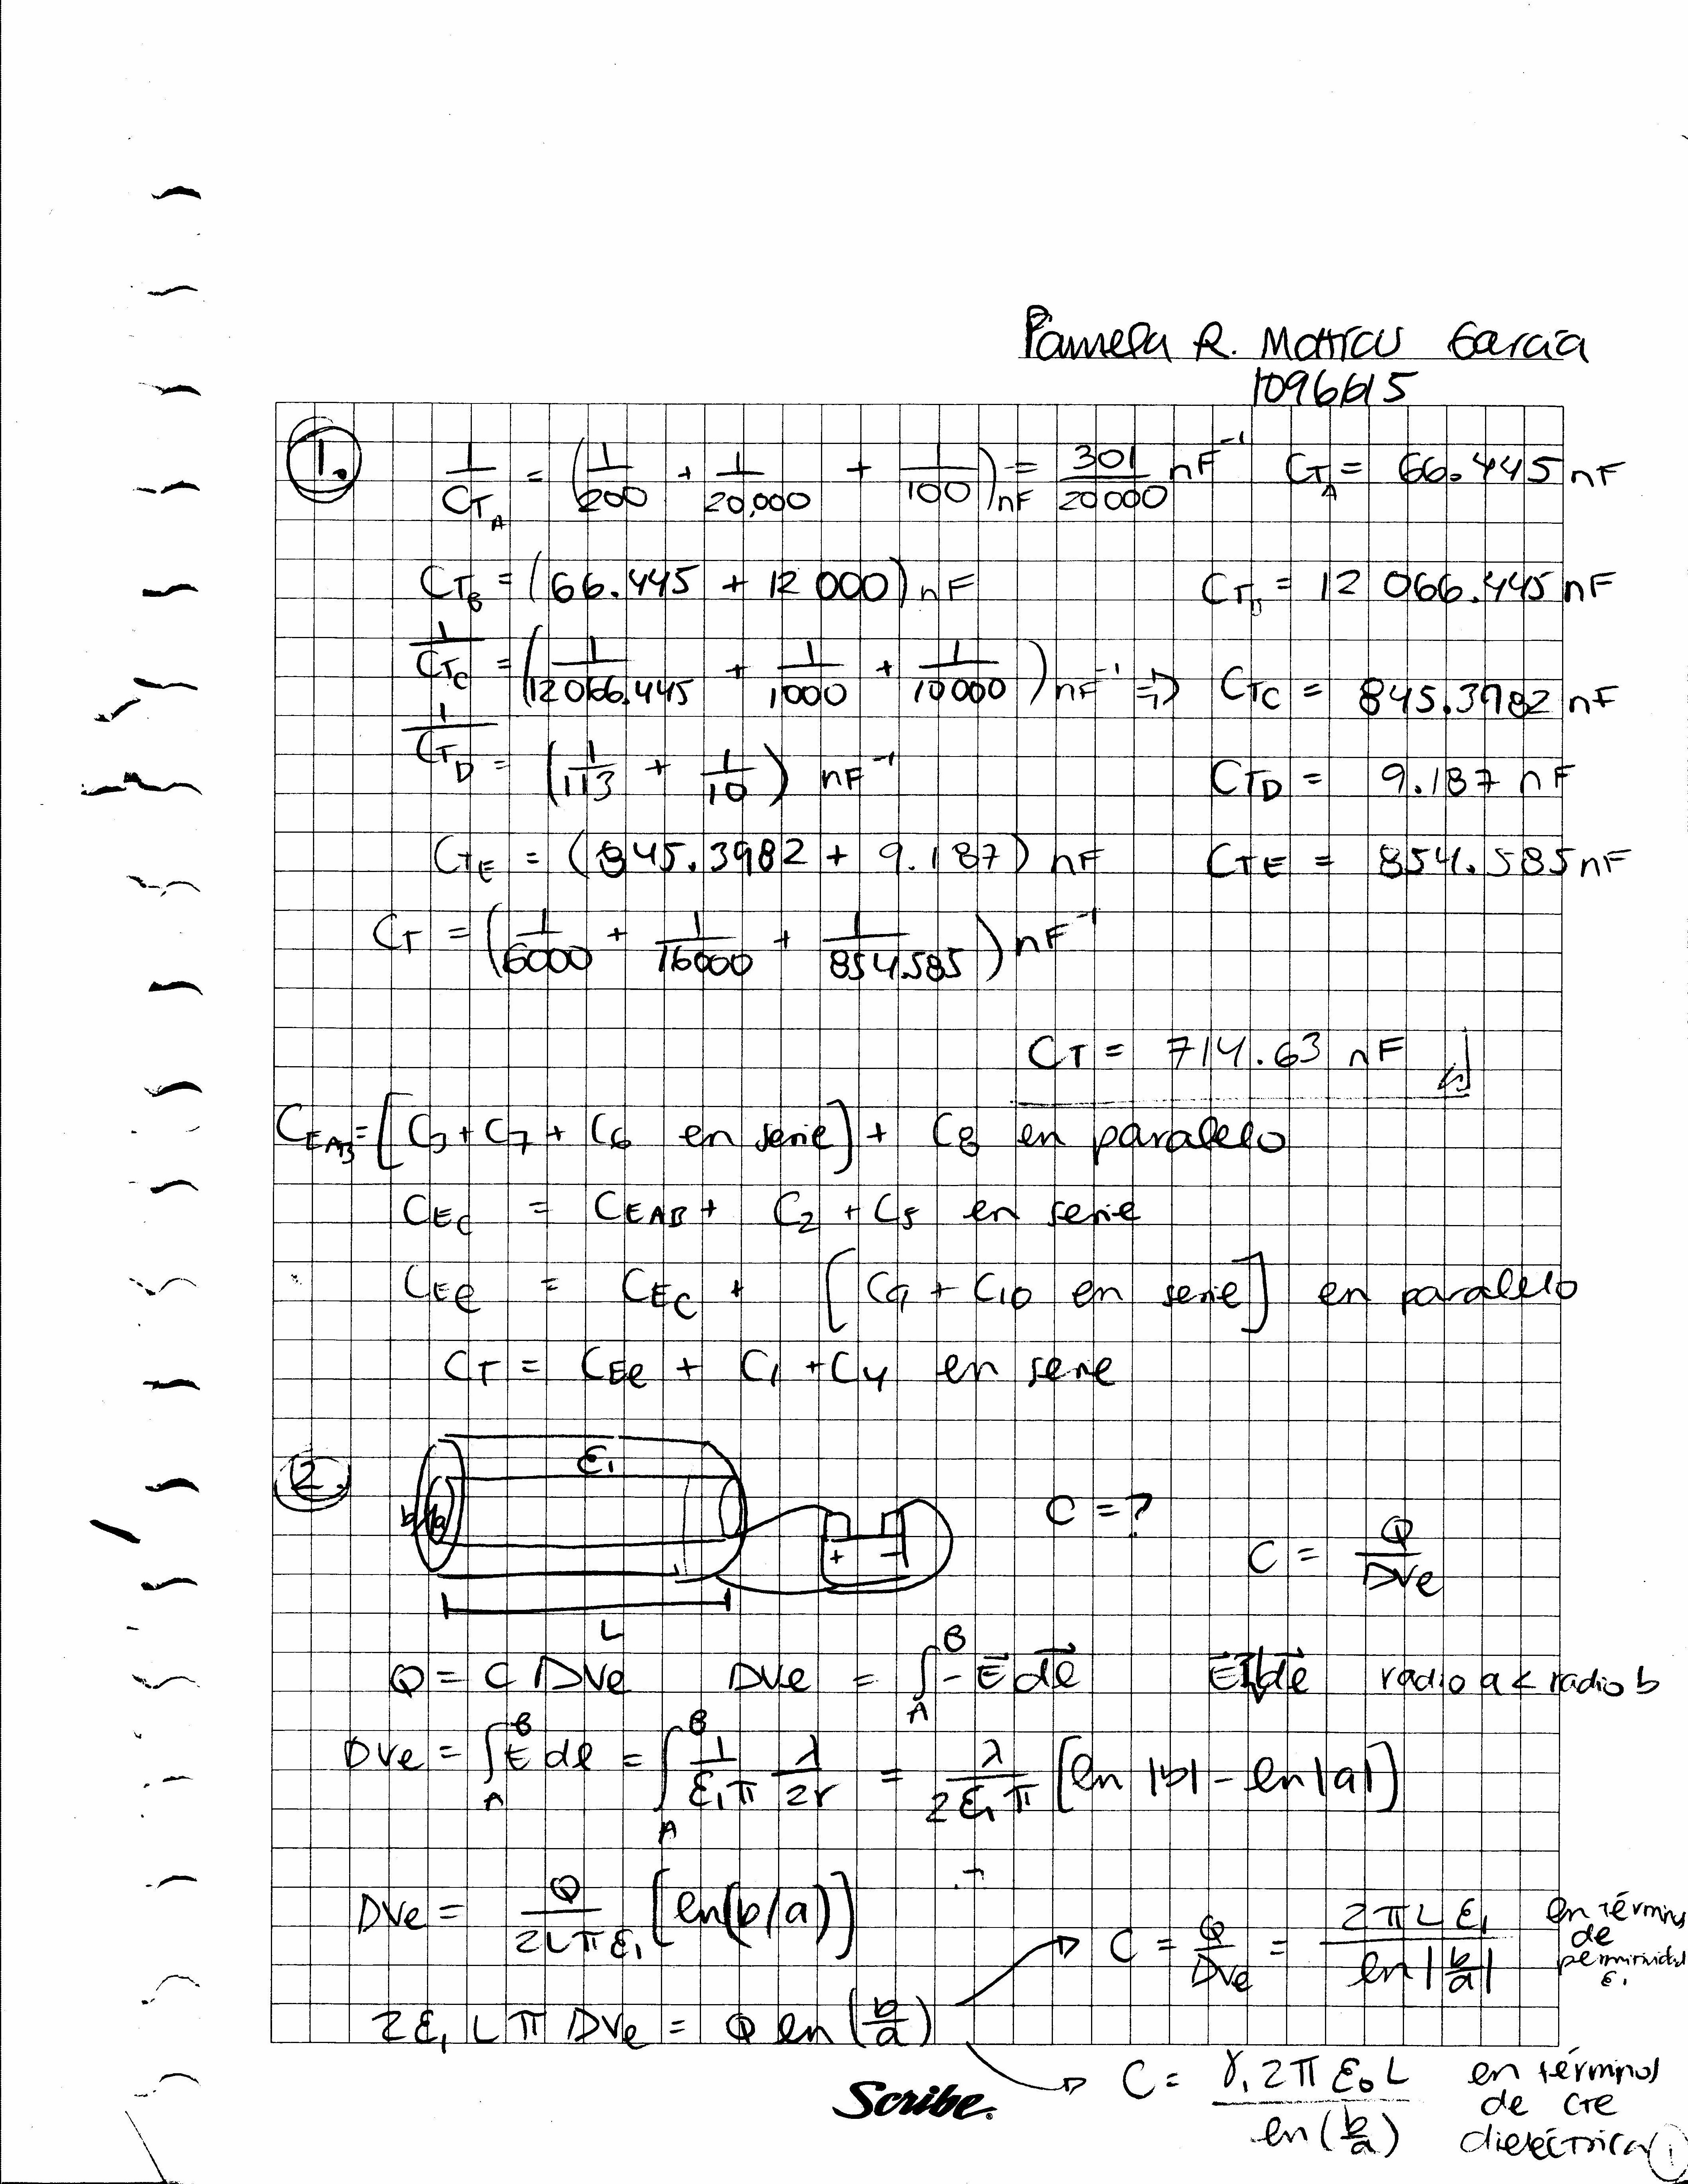 Pamela R. Motticus Garcia
1096615
1. 1/CTA = (1/200 + 1/20,000 + 1/100)nF = 301/20000 nF⁻¹ CTA = 66.445 nF
CTB = (66.445 + 12 000) nF CTB = 12 066.445 nF
1/CTC = (1/12066.445 + 1/1000 + 1/10000) nF⁻¹ => CTC = 845.3982 nF
1/CTD = (1/113 + 1/10) nF⁻¹ CTD = 9.187 nF
CTE = (845.3982 + 9.187) nF CTE = 854.585 nF
CT = (1/6000 + 1/16000 + 1/854.585) nF⁻¹
CT = 714.63 nF
CEAB = [C3 + C7 + C6 en serie] + C8 en paralelo
CEC = CEAB + C2 + C5 en serie
CEe = CEC + [C9 + C10 en serie] en paralelo
CT = CEe + C1 + C4 en serie
2. ε1
b a + − C = ? C = Q/DVe
L
Q = C DVe DVe = ∫AB −E⃗ dℓ⃗ radio a < radio b
DVe = ∫AB E dℓ = ∫AB 1/ε1π λ/2r = λ/2ε1π [ln |b| − ln |a|]
DVe = Q/2Lπε1 [ln(b/a)]
C = Q/DVe = 2πLε1/ln|b/a| en términos de permitividad ε1
2ε1 L π DVe = Q ln(b/a)
C = γ1 2π ε0 L/ln(b/a) en términos de cte dieléctrica
Scribe
1